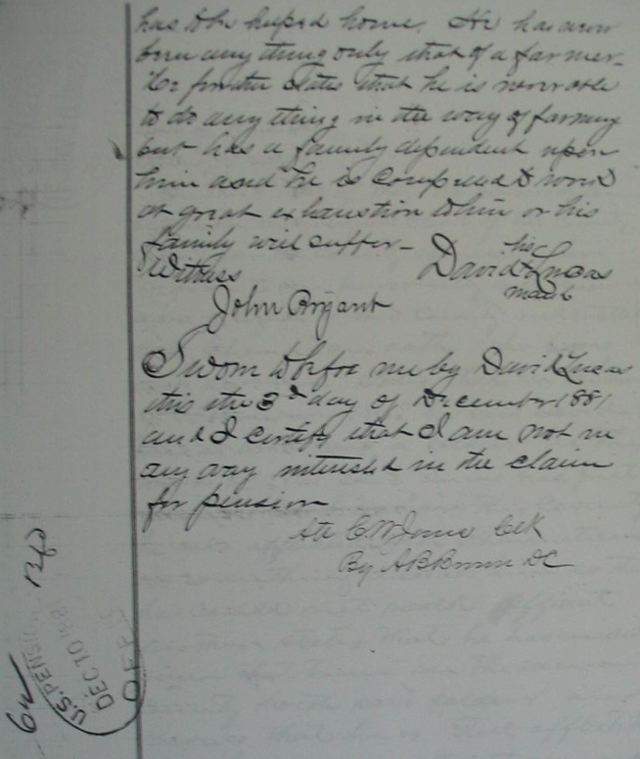 has to be helped home. He has never
been any thing only that of a farmer.
He further States that he is not able
to do any thing in the way of farming
but has a family dependent upon
him and he is compelled to work
at great exhaustion to him or his
family will suffer-
Witness
his
David + Lucas
mark
John Bryant
Sworn to before me by David Lucas
this the 3d day of December 1881
and I certify that I am not in
any way interested in the claim
for pension
Att C. W. Jones Clk
By A B Brown DC
U.S. PENSION
DEC 10 1881
OFFICE